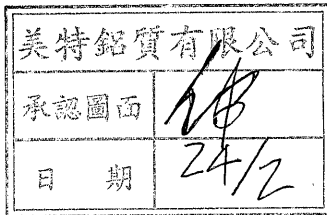 美特鋁質有限公司
承認圖面
日 期 24/2